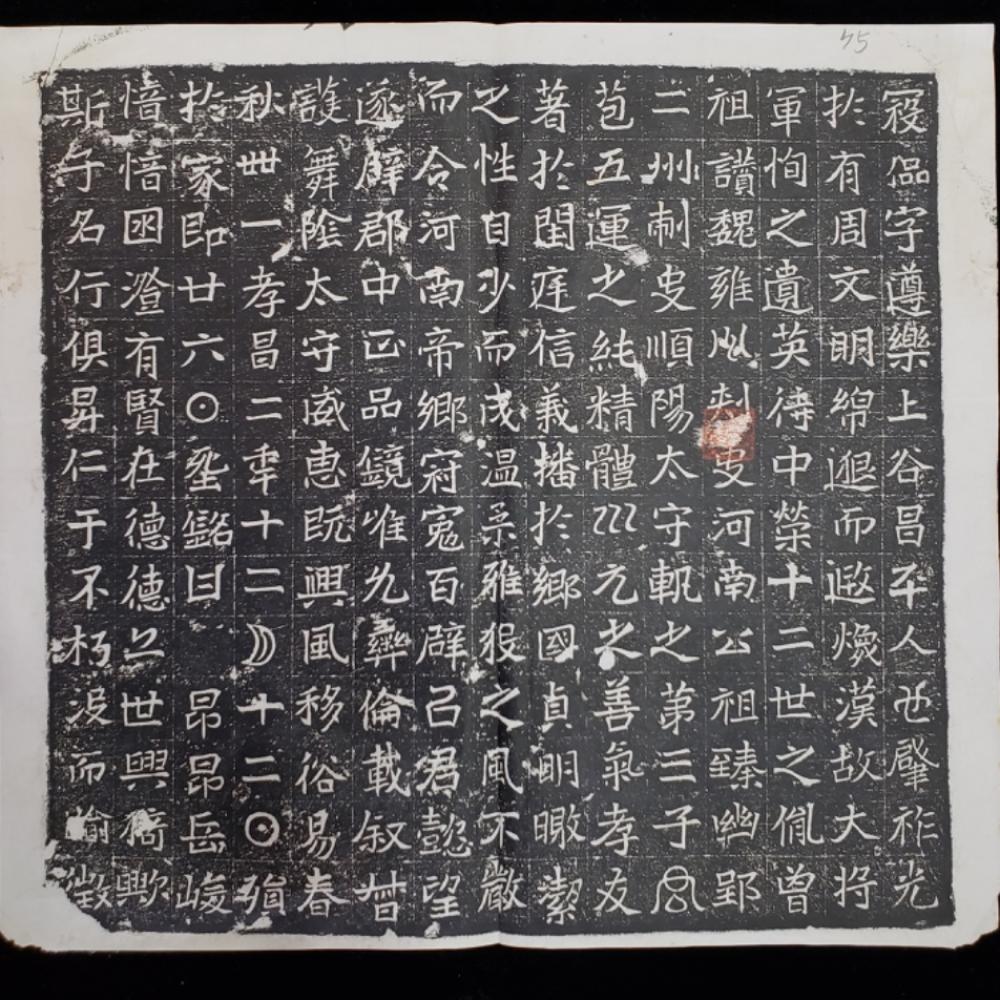 寇偘字遵樂上谷昌平人也肇祚光
於有周文明綿邈而遐煥漢故大將
軍恂之遺英侍中榮十二世之胤曾
祖讚魏雍州刺史河南公祖臻幽郢
二州刺史順陽太守軌之第三子
苞五運之純精體巛元之善氣孝友
著於閨庭信義播於鄉國貞明曒潔
之性自少而成溫柔雅之風不嚴
而令河南帝鄉冠冕百辟己君懿望
遂辟郡中正品鏡唯允彝倫載叙昔
護舞陰太守威惠既興風移俗易春
秋卌一孝昌二年十二月十二日殯
於家即廿六日銘曰 昂昂岳峻
愔愔囦澄有賢在德德以世興猗歟
斯子名行俱昇仁于不朽沒而愉徽
45